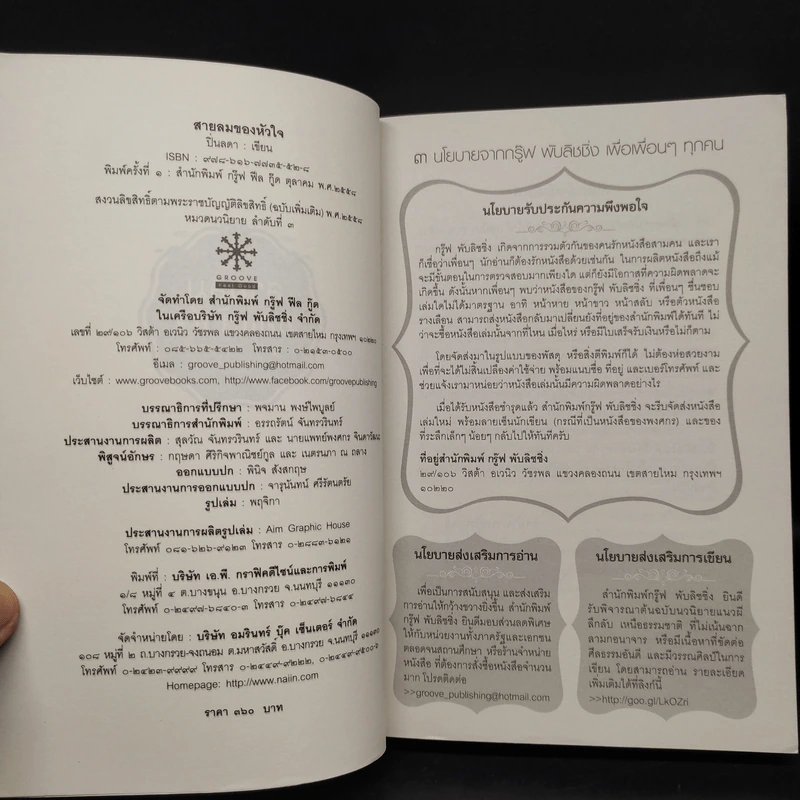 สายลมของหัวใจ
ปิ่นลดา : เขียน
ISBN : ๙๗๘-๖๑๖-๗๗๓๕-๕๒-๘
พิมพ์ครั้งที่ ๑ : สำนักพิมพ์ กรู๊ฟ ฟีล กู๊ด ตุลาคม พ.ศ.๒๕๕๘
สงวนลิขสิทธิ์ตามพระราชบัญญัติลิขสิทธิ์ (ฉบับเพิ่มเติม) พ.ศ.๒๕๕๘
หมวดนวนิยาย ลำดับที่ ๓
GROOVE
Feel Good
จัดทำโดย สำนักพิมพ์ กรู๊ฟ ฟีล กู๊ด
ในเครือบริษัท กรู๊ฟ พับลิชชิ่ง จำกัด
เลขที่ ๒๙/๑๐๖ วิสต้า อเวนิว วัชรพล แขวงคลองถนน เขตสายไหม กรุงเทพ ๑๐๒๒๐
โทรศัพท์ : ๐๘๕-๖๖๕-๕๔๒๒ โทรสาร : ๐-๒๑๕๓-๐๕๐๐
อีเมล : groove_publishing@hotmail.com
เว็บไซต์ : www.groovebooks.com, http://www.facebook.com/groovepublishing
บรรณาธิการที่ปรึกษา : พจมาน พงษ์ไพบูลย์
บรรณาธิการสำนักพิมพ์ : อรรถรัตน์ จันทรวรินทร์
ประสานงานการผลิต : สุลวัณ จันทรวรินทร์ และ นายแพทย์พงศกร จินดาวัฒนะ
พิสูจน์อักษร : กฤษดา ศิริกิจพาณิชย์กูล และ เนตรนภา ณ ถลาง
ออกแบบปก : พินิจ สังสกฤษ
ประสานงานการออกแบบปก : จารุนันทน์ ศรีรัตนตรัย
รูปเล่ม : พฤจิกา
ประสานงานการผลิตรูปเล่ม : Aim Graphic House
โทรศัพท์ ๐๘๑-๖๒๖-๙๑๒๓ โทรสาร ๐-๒๘๘๓-๖๑๒๑
พิมพ์ที่ : บริษัท เอ.พี. กราฟิคดีไซน์และการพิมพ์
๑/๘ หมู่ที่ ๔ ต.บางขนุน อ.บางกรวย จ.นนทบุรี ๑๑๑๓๐
โทรศัพท์ ๐-๒๔๙๗-๖๘๔๐-๓ โทรสาร ๐-๒๔๙๗-๖๘๔๔
จัดจำหน่ายโดย : บริษัท อมรินทร์ บุ๊ค เซ็นเตอร์ จำกัด
๑๐๘ หมู่ที่ ๒ ถ.บางกรวย-จงถนอม ต.มหาสวัสดิ์ อ.บางกรวย จ.นนทบุรี ๑๑๑๓๐
โทรศัพท์ ๐-๒๔๒๓-๙๙๙๙ โทรสาร ๐-๒๔๔๙-๙๒๒๒, ๐-๒๔๔๙-๙๕๐๐-๖
Homepage: http://www.naiin.com
ราคา ๓๖๐ บาท
๓ นโยบายจากกรู๊ฟ พับลิชชิ่ง เพื่อเพื่อนๆ ทุกคน
นโยบายรับประกันความพึงพอใจ
กรู๊ฟ พับลิชชิ่ง เกิดจากการรวมตัวกันของคนรักหนังสือสามคน และเรา
ก็เชื่อว่าเพื่อนๆ นักอ่านก็ต้องรักหนังสือด้วยเช่นกัน ในการผลิตหนังสือถึงแม้
จะมีขั้นตอนในการตรวจสอบมากเพียงใด แต่ก็ยังมีโอกาสที่ความผิดพลาดจะ
เกิดขึ้น ดังนั้นหากเพื่อนๆ พบว่าหนังสือของกรู๊ฟ พับลิชชิ่ง ที่เพื่อนๆ ชื่นชอบ
เล่มใดไม่ได้มาตรฐาน อาทิ หน้าหาย หน้าขาว หน้าสลับ หรือตัวหนังสือ
รางเลือน สามารถส่งหนังสือกลับมาเปลี่ยนยังที่อยู่ของสำนักพิมพ์ได้ทันที ไม่
ว่าจะซื้อหนังสือเล่มนั้นจากที่ไหน เมื่อไหร่ หรือมีใบเสร็จรับเงินหรือไม่ก็ตาม
โดยจัดส่งมาในรูปแบบของพัสดุ หรือสิ่งตีพิมพ์ก็ได้ ไม่ต้องห่อสวยงาม
เพื่อที่จะได้ไม่สิ้นเปลืองค่าใช้จ่าย พร้อมแนบชื่อ ที่อยู่ และเบอร์โทรศัพท์ และ
ช่วยแจ้งเรามาหน่อยว่าหนังสือเล่มนั้นมีความผิดพลาดอย่างไร
เมื่อได้รับหนังสือชำรุดแล้ว สำนักพิมพ์กรู๊ฟ พับลิชชิ่ง จะรีบจัดส่งหนังสือ
เล่มใหม่ พร้อมลายเซ็นนักเขียน (กรณีที่เป็นหนังสือของพงศกร) และของ
ที่ระลึกเล็กๆ น้อยๆ กลับไปให้ทันทีครับ
ที่อยู่สำนักพิมพ์ กรู๊ฟ พับลิชชิ่ง
๒๙/๑๐๖ วิสต้า อเวนิว วัชรพล แขวงคลองถนน เขตสายไหม กรุงเทพฯ
๑๐๒๒๐
นโยบายส่งเสริมการอ่าน
เพื่อเป็นการสนับสนุน และส่งเสริม
การอ่านให้กว้างขวางยิ่งขึ้น สำนักพิมพ์
กรู๊ฟ พับลิชชิ่ง ยินดีมอบส่วนลดพิเศษ
ให้กับหน่วยงานทั้งภาครัฐและเอกชน
ตลอดจนสถานศึกษา หรือร้านจำหน่าย
หนังสือ ที่ต้องการสั่งซื้อหนังสือจำนวน
มาก โปรดติดต่อ
>>groove_publishing@hotmail.com
นโยบายส่งเสริมการเขียน
สำนักพิมพ์กรู๊ฟ พับลิชชิ่ง ยินดี
รับพิจารณาต้นฉบับนวนิยายแนวผี
ลึกลับ เหนือธรรมชาติ ที่ไม่เน้นฉาก
ลามกอนาจาร หรือมีเนื้อหาที่ขัดต่อ
ศีลธรรมอันดี และมีวรรณศิลป์ในการ
เขียน โดยสามารถอ่าน รายละเอียด
เพิ่มเติมได้ที่ลิงก์นี้
>>http://goo.gl/LkOZri